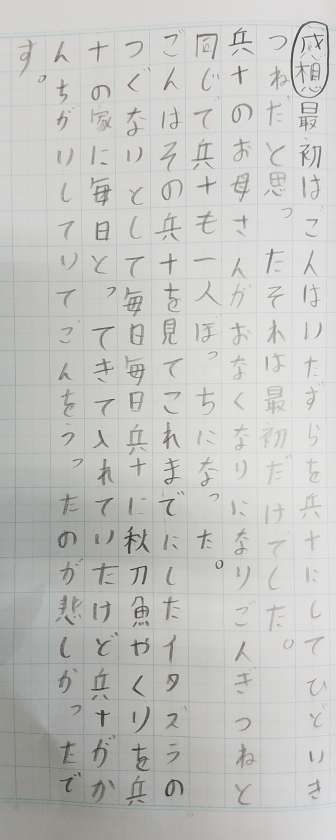 感想最初は、ごん人はいたずらを兵十にしてひどいき
つねだと思ったそれは最初だけてした。
兵十のお母さんがおなくなりになりごん人ぎつねと
同じで兵十も一人ぼっちになった。
ごんはそのあ兵十を見てこれまでにしたイタズラの
つぐないとして毎日毎日兵十に秋刀魚やくりを兵
十の家に毎日とってきて入れていたけど兵十がか
んちがいしていてごんをうったのが悲しかったで
す。